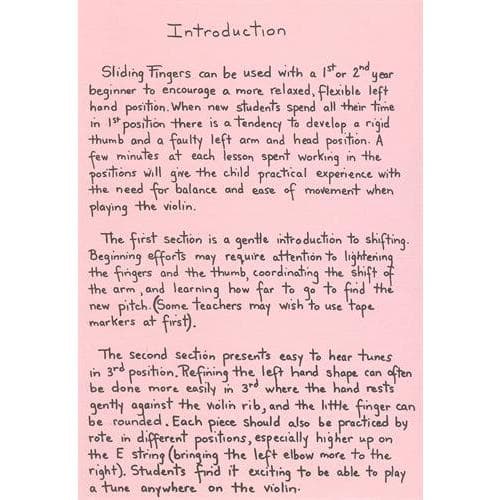 Introduction
Sliding Fingers can be used with a 1st or 2nd year
beginner to encourage a more relaxed, flexible left
hand position. When new students spend all their time
in 1st position there is a tendency to develop a rigid
thumb and a faulty left arm and head position. A
few minutes at each lesson spent working in the
positions will give the child practical experience with
the need for balance and ease of movement when
playing the violin.
The first section is a gentle introduction to shifting.
Beginning efforts may require attention to lightening
the fingers and the thumb, coordinating the shift of
the arm, and learning how far to go to find the
new pitch. (Some teachers may wish to use tape
markers at first).
The second section presents easy to hear tunes
in 3rd position. Refining the left hand shape can often
be done more easily in 3rd where the hand rests
gently against the violin rib, and the little finger can
be rounded. Each piece should also be practiced by
rote in different positions, especially higher up on
the E string (bringing the left elbow more to the
right). Students find it exciting to be able to play
a tune anywhere on the violin.